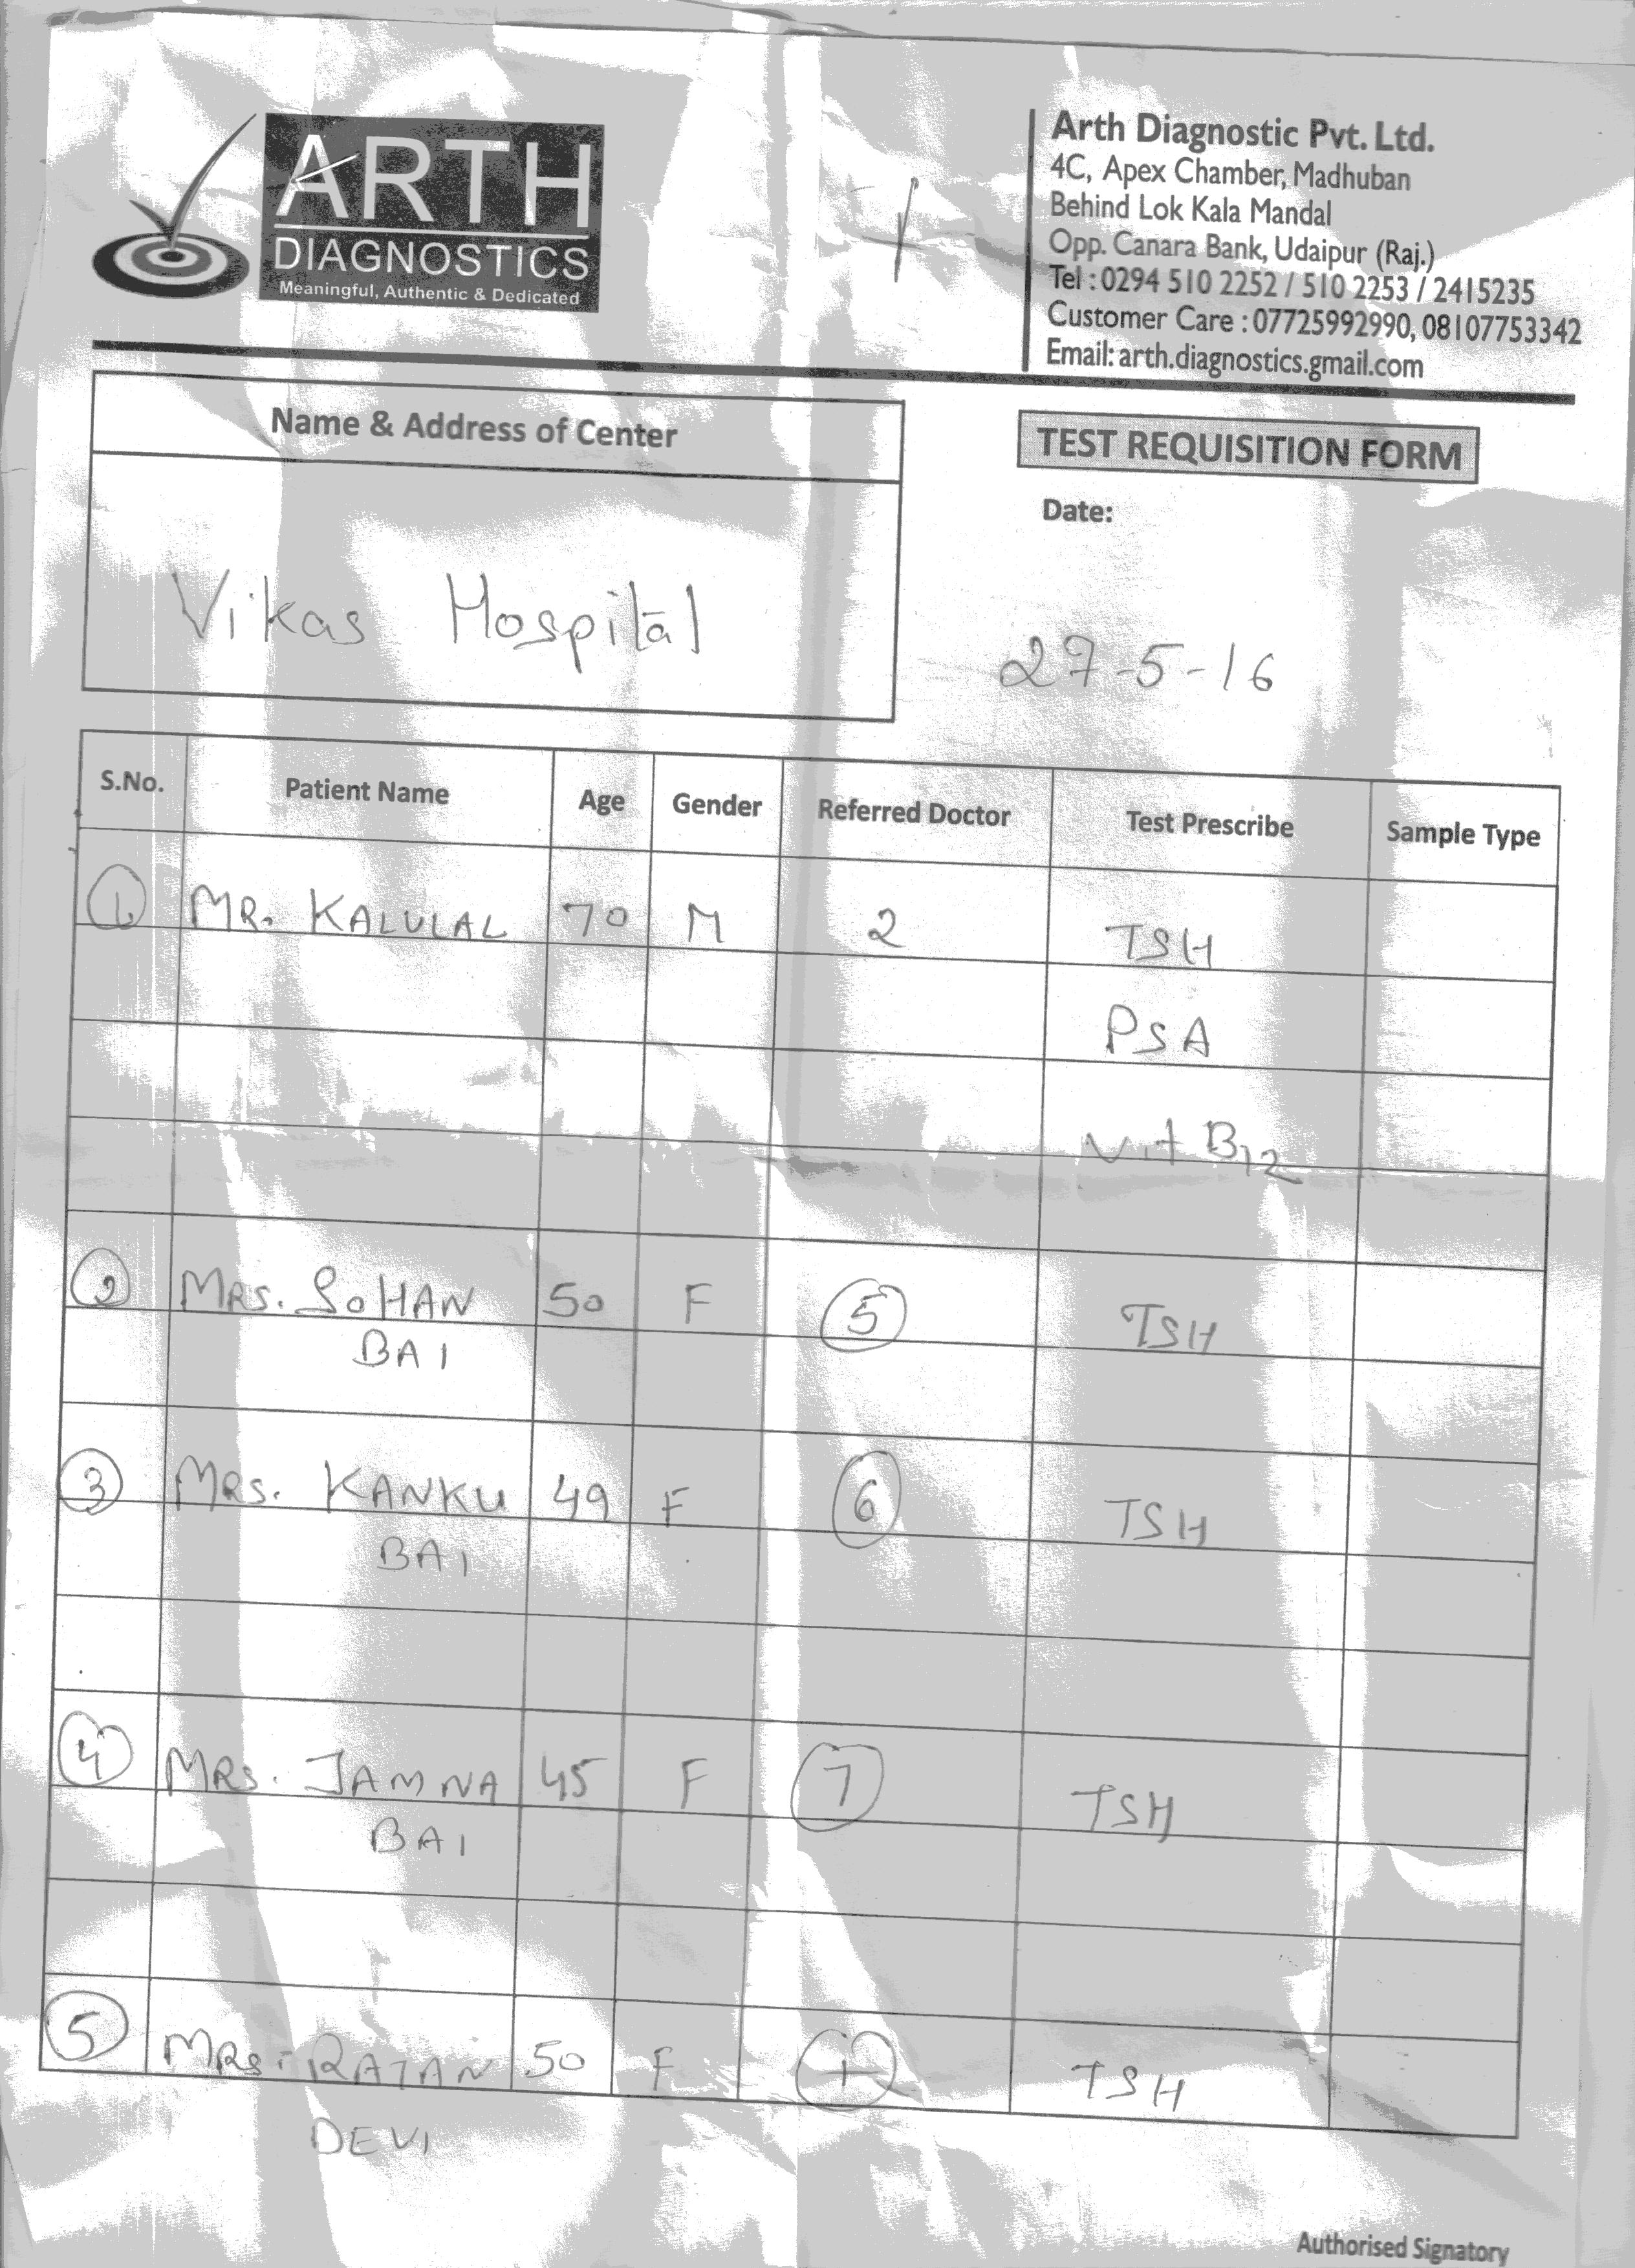 ARTH
DIAGNOSTICS
Meaningful, Authentic & Dedicated
Arth Diagnostic Pvt. Ltd.
4C, Apex Chamber, Madhuban
Behind Lok Kala Mandal
Opp. Canara Bank, Udaipur (Raj.)
Tel : 0294 510 2252 / 510 2253 / 2415235
Customer Care : 07725992990, 08107753342
Email: arth.diagnostics.gmail.com
Name & Address of Center
TEST REQUISITION FORM
Date:
Vikas Hospital
27-5-16
S.No. Patient Name Age Gender Referred Doctor Test Prescribe Sample Type
1 MR. KALULAL 70 M 2 TSH
PSA
Vit B12
2 MRS. SOHAN 50 F 5 TSH
BAI
3 MRS. KANKU 49 F 6 TSH
BAI
4 MRS. JAMNA 45 F 7 TSH
BAI
5 MRS. RATAN 50 F 1 TSH
DEVI
Authorised Signatory